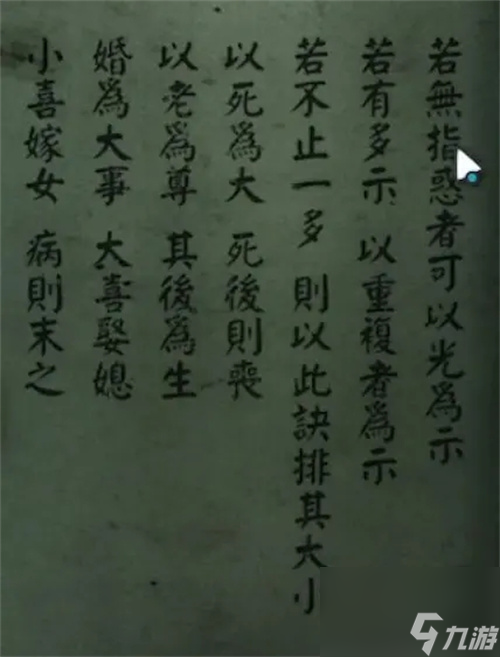 若無指惑者可以光為示
若有多示 以重複者為示
若不止一多 則以此訣排其大小
以死為大 死後則喪
以老為尊 其後為生
婚為大事 大喜娶媳
小喜嫁女 病則末之
九游